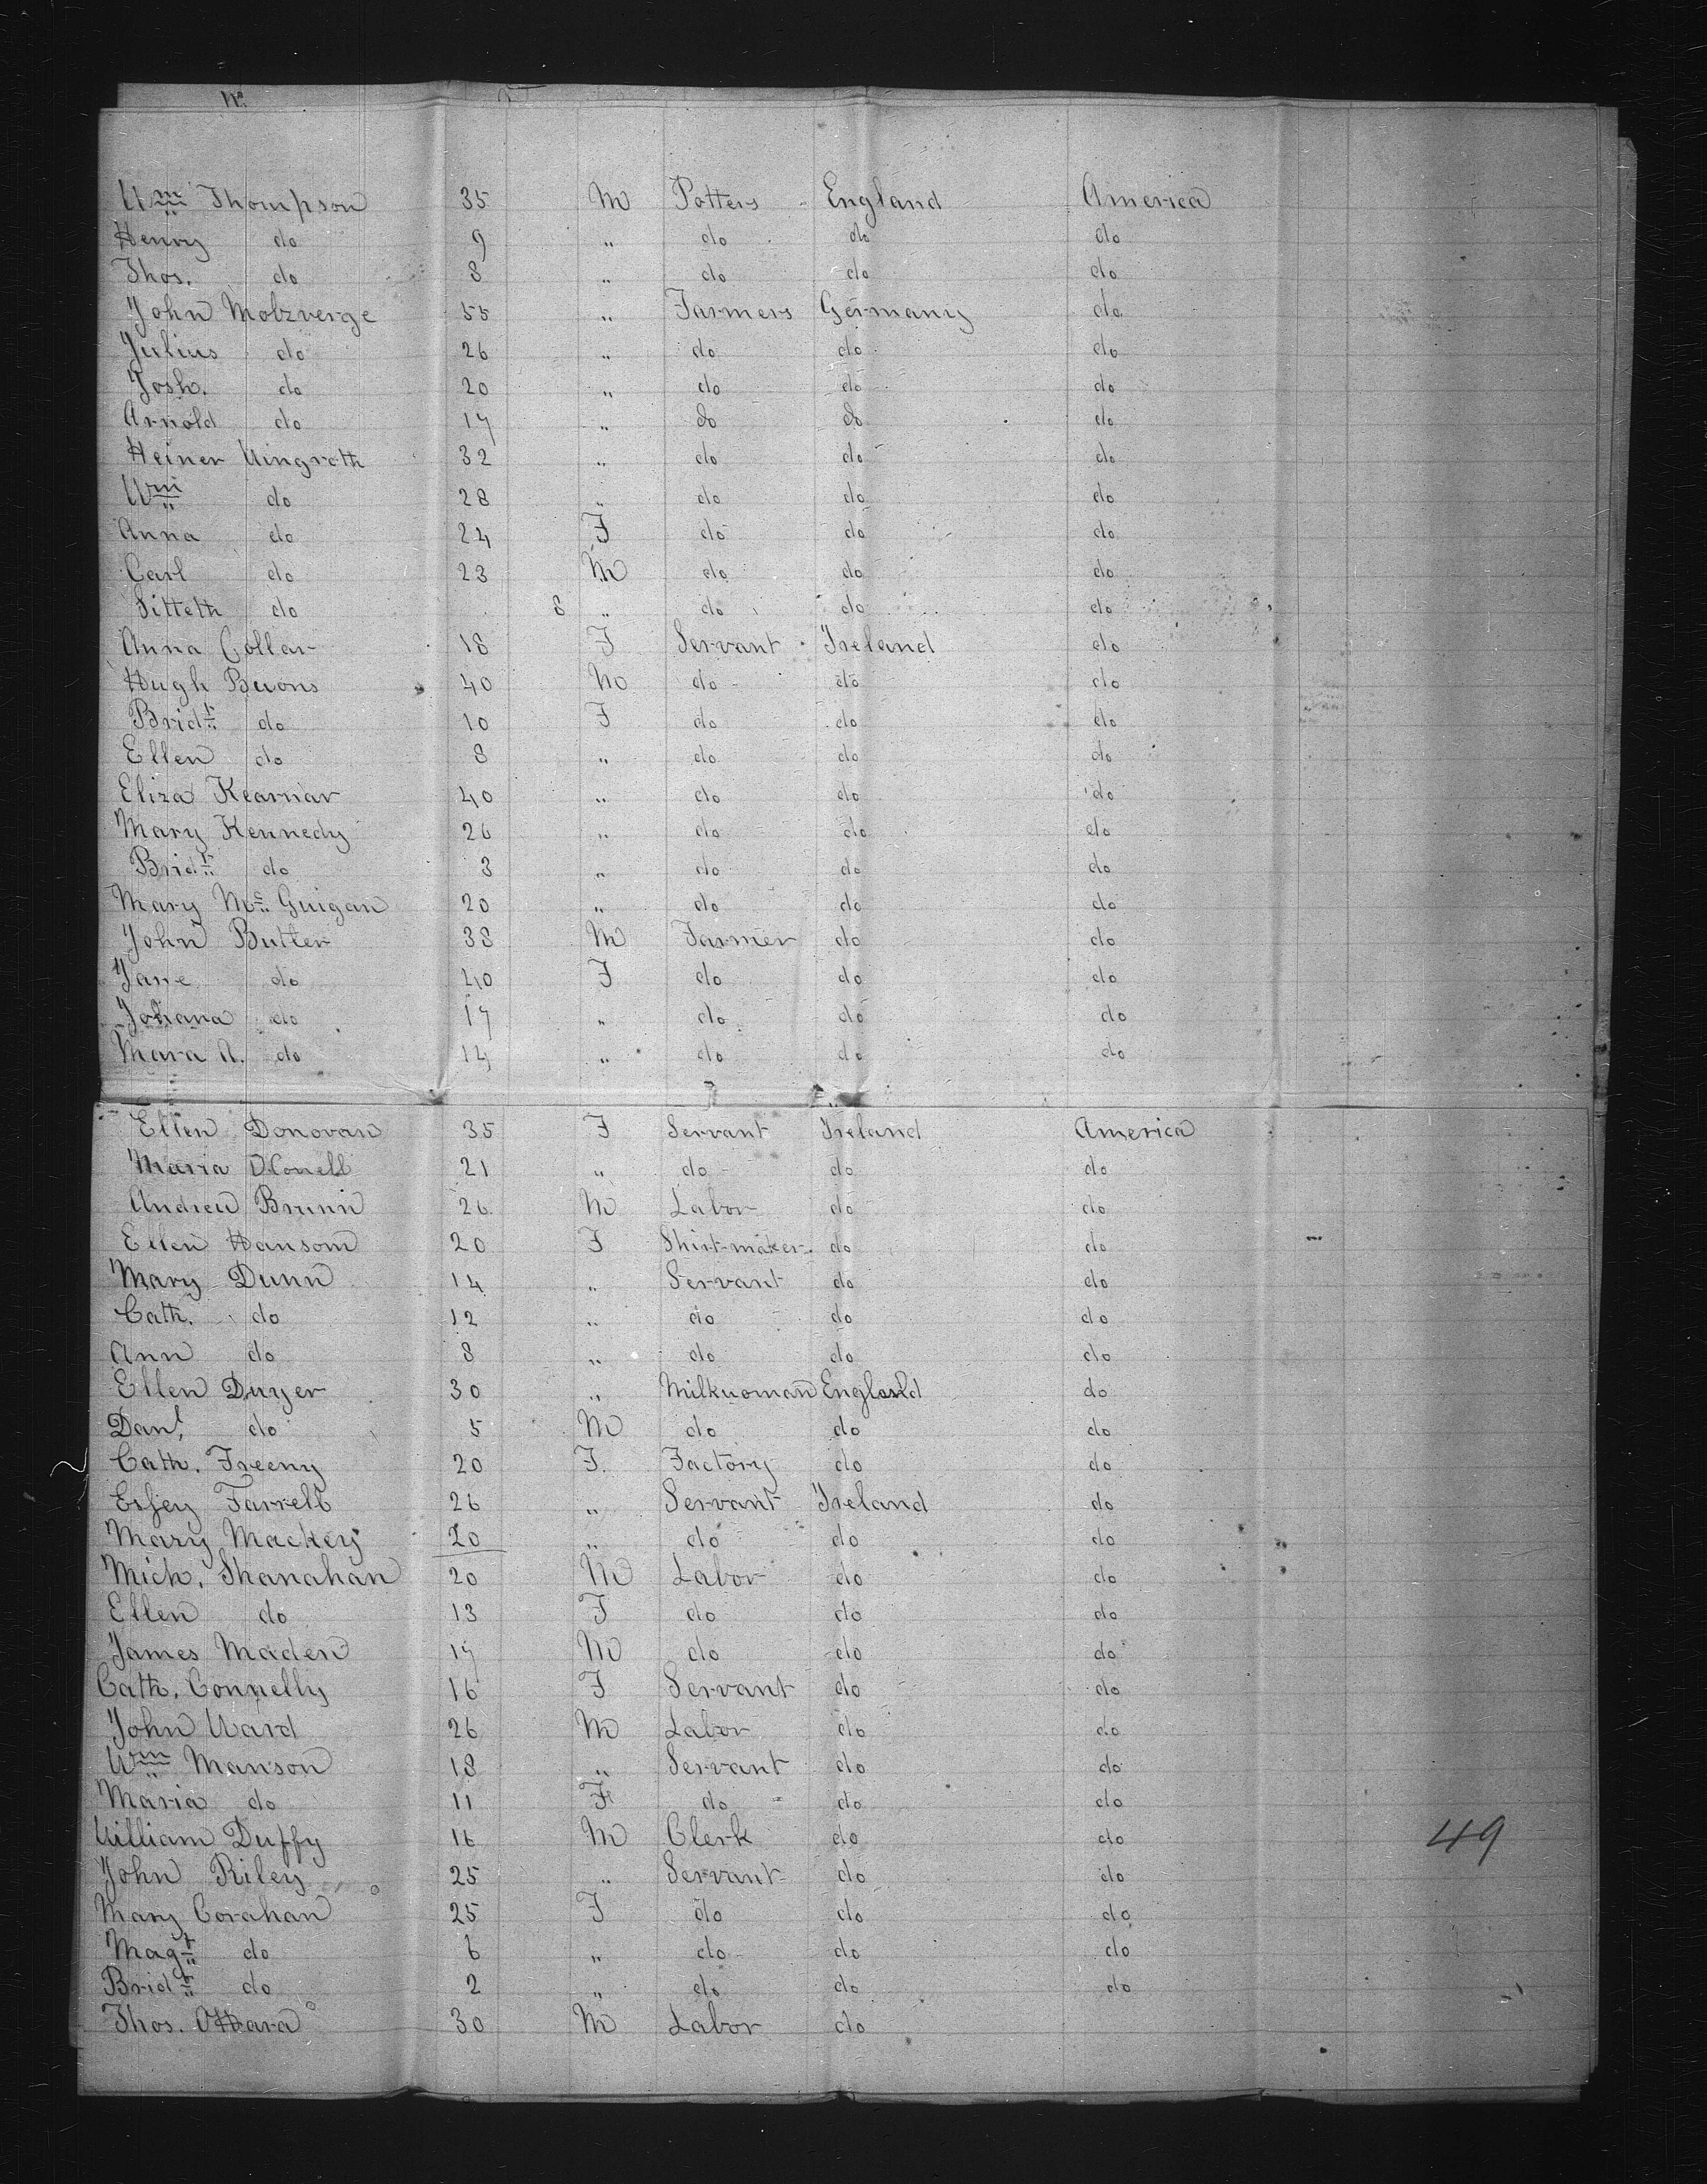 Wm Thompson 35 M Potters England America
Henry do 9 " do do do
Thos. do 8 " do do do
John Molzverge 55 " Farmers Germany do
Julius do 26 " do do do
Josh. do 20 " do do do
Arnold do 17 " do do do
Heiner Wingroth 32 " do do do
Wm do 28 " do do do
Anna do 24 F do do do
Carl do 23 M do do do
Sitteth do 8 " do do do
Anna Collar 18 F Servant Ireland do
Hugh Buons 40 M do do do
Bridt do 10 F do do do
Ellen do 8 " do do do
Eliza Kearnar 40 " do do do
Mary Kennedy 26 " do do do
Bridt do 3 " do do do
Mary Mc Guigan 20 " do do do
John Butler 38 M Farmer do do
Jane do 40 F do do do
Johana do 17 " do do do
Mara A. do 14 " do do do
Ellen Donovan 35 F Servant Ireland America
Maria O.Conell 21 " do do do
Andrew Brunn 26 M Labor do do
Ellen Hansom 20 F Shirt-maker do do
Mary Dunn 14 " Servant do do
Cath. do 12 " do do do
Ann do 8 " do do do
Ellen Dwyer 30 " Milkwoman England do
Danl, do 5 M do do do
Cath. Freeny 20 F. Factory do do
Essey Farrell 26 " Servant Ireland do
Mary Mackey 20 " do do do
Mich. Shanahan 20 M Labor do do
Ellen do 13 F do do do
James Maden 17 M do do do
Cath. Connelly 16 F Servant do do
John Ward 26 M Labor do do
Wm Manson 18 " Servant do do
Maria do 11 F do do do
William Duffy 16 M Clerk do do 49
John Riley 25 " Servant do do
Mary Corahan 25 F do do do
Magt do 6 " do do do
Bridt do 2 " do do do
Thos. OHara 30 M Labor do